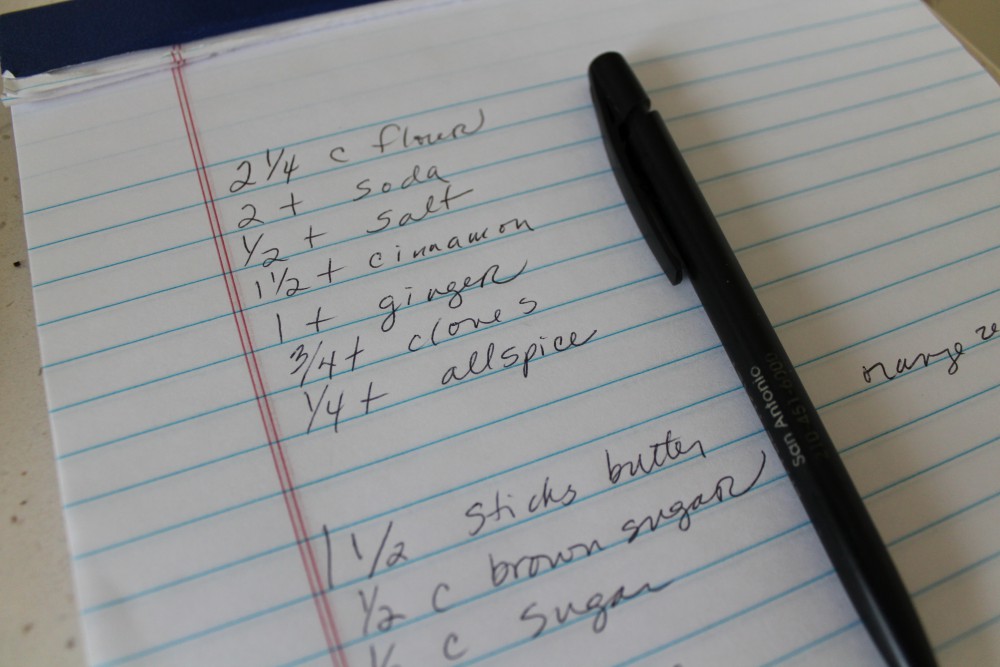 2 1/4 c flour
2 t soda
1/2 t salt
1 1/2 t cinnamon
1 t ginger
3/4 t cloves
1/4 t allspice
1 1/2 sticks butter
1/2 c brown sugar
c sugar
San Antonio